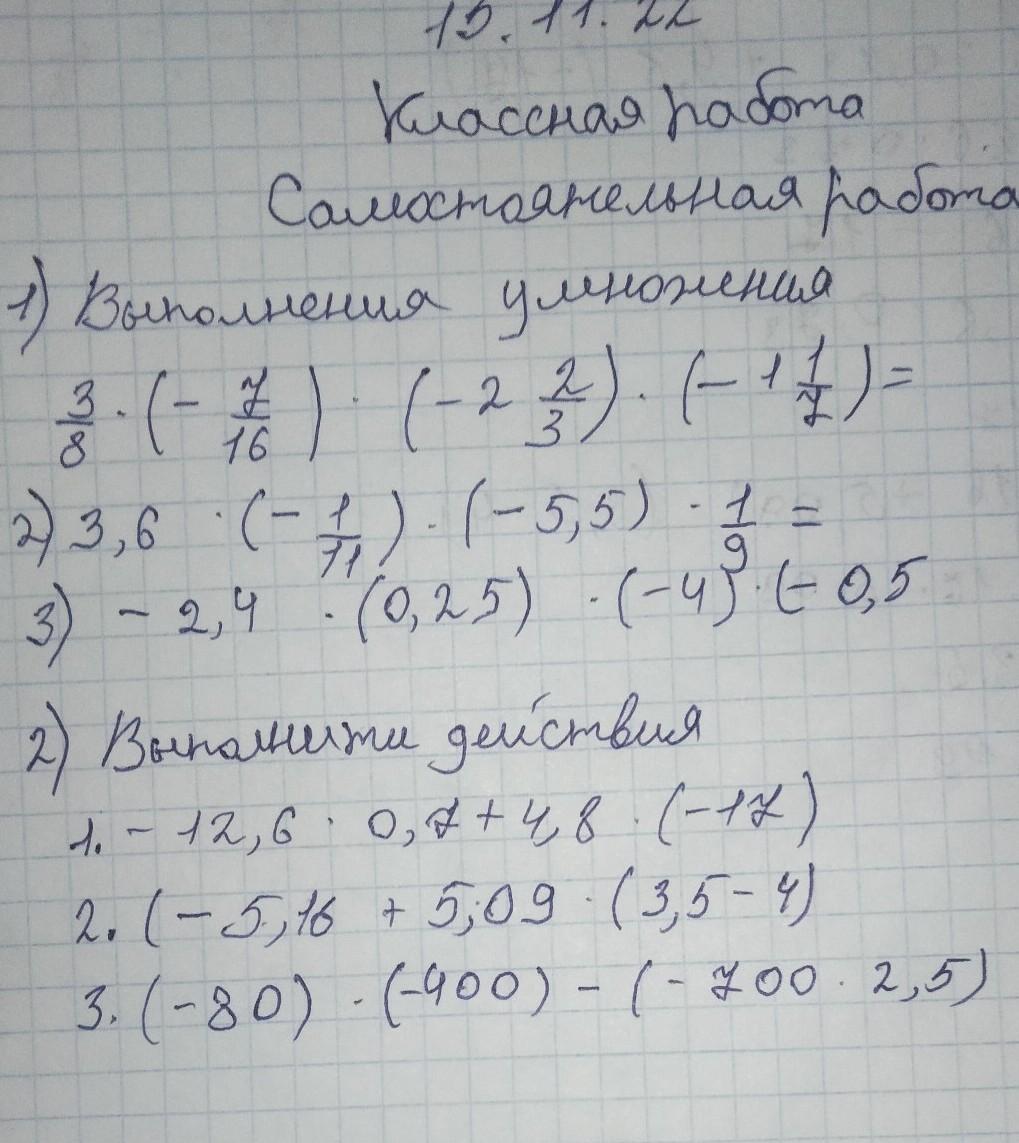 15.11.22
Классная работа
Самостоятельная работа
1) Выполнения умножения
3/8 · (- 7/16) · (-2 2/3) · (-1 1/7) =
2) 3,6 · (- 1/11) · (-5,5) · 1/9 =
3) - 2,4 · (0,25) · (-4) · (- 0,5
2) Выполнити действия
1. - 12,6 · 0,7 + 4,8 · (-17)
2. (- 5,16 + 5,09 · (3,5 - 4)
3. (-80) · (-400) - (- 700 · 2,5)